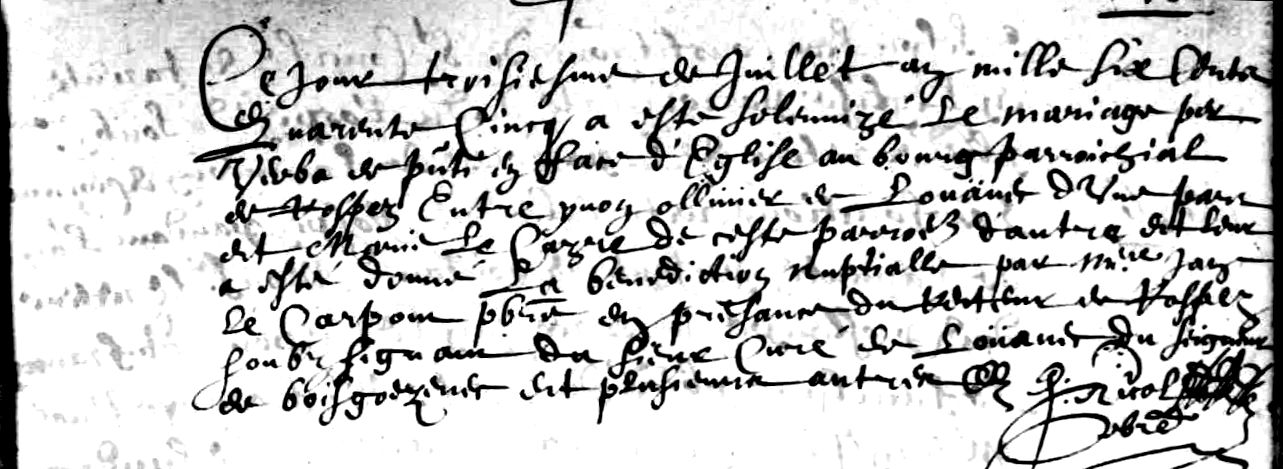 Ce Jour troisiesme de Juillet an mille six Cents
quarente Cincq a este solennizé Le mariage per
verba de pñti en fface d'Eglise au bourg parroichial
de Rospez Entre yvon ollivier de Louanec d'Une part
et Marie Le de ceste parroes d'autre et leur
a esté donné La benediction nuptialle par mre Jan
Le Carpont pbre en presance du Recteur de Rospez
soubz signant du sieur Curé de Loüanec du seigneur
de boisgoezenec et plusieurs autres
pbre